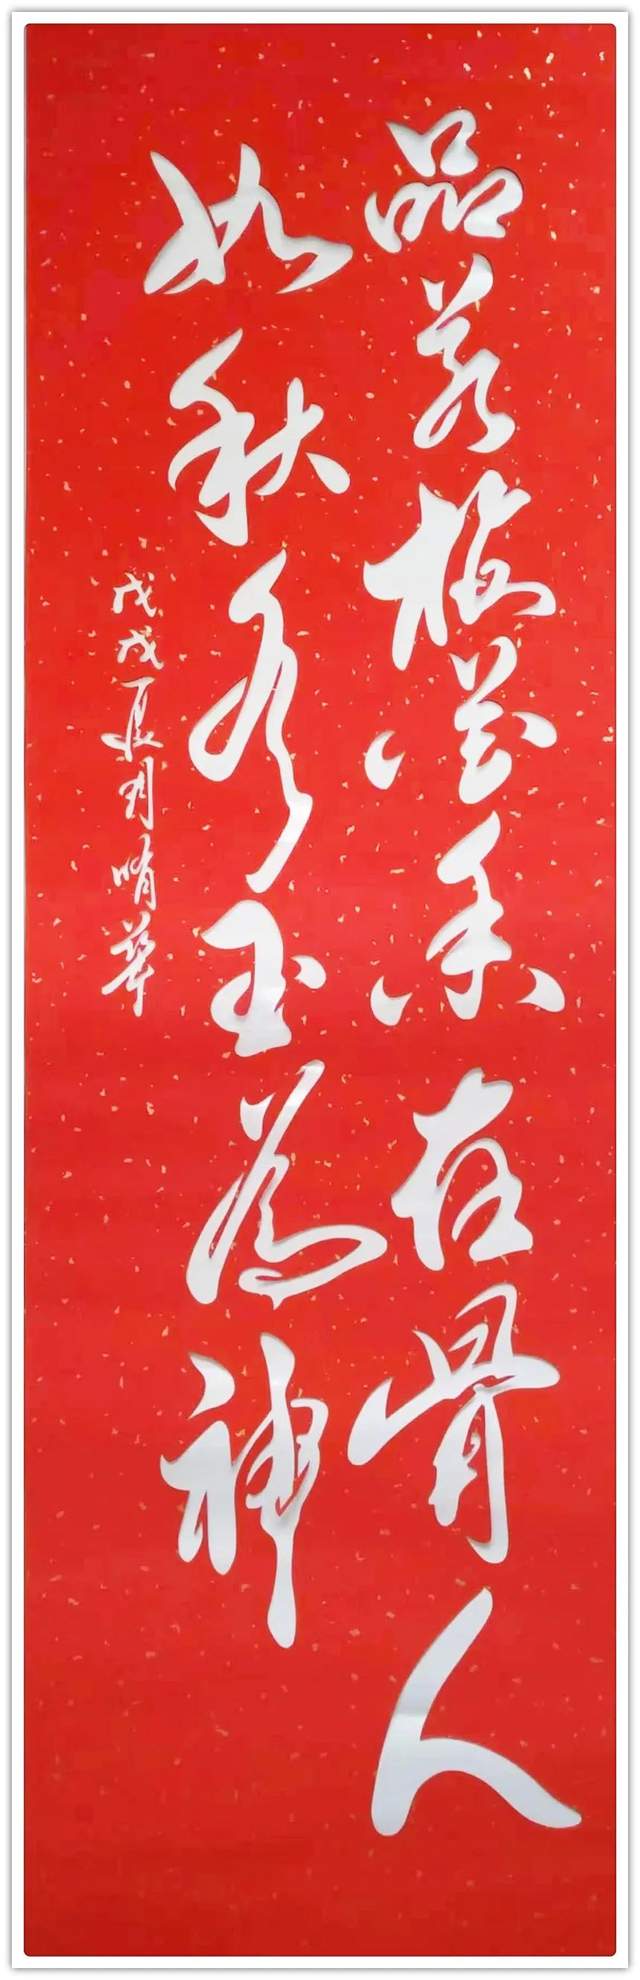 品若梅花香在骨人
如秋水玉为神
戊戌夏月晴华